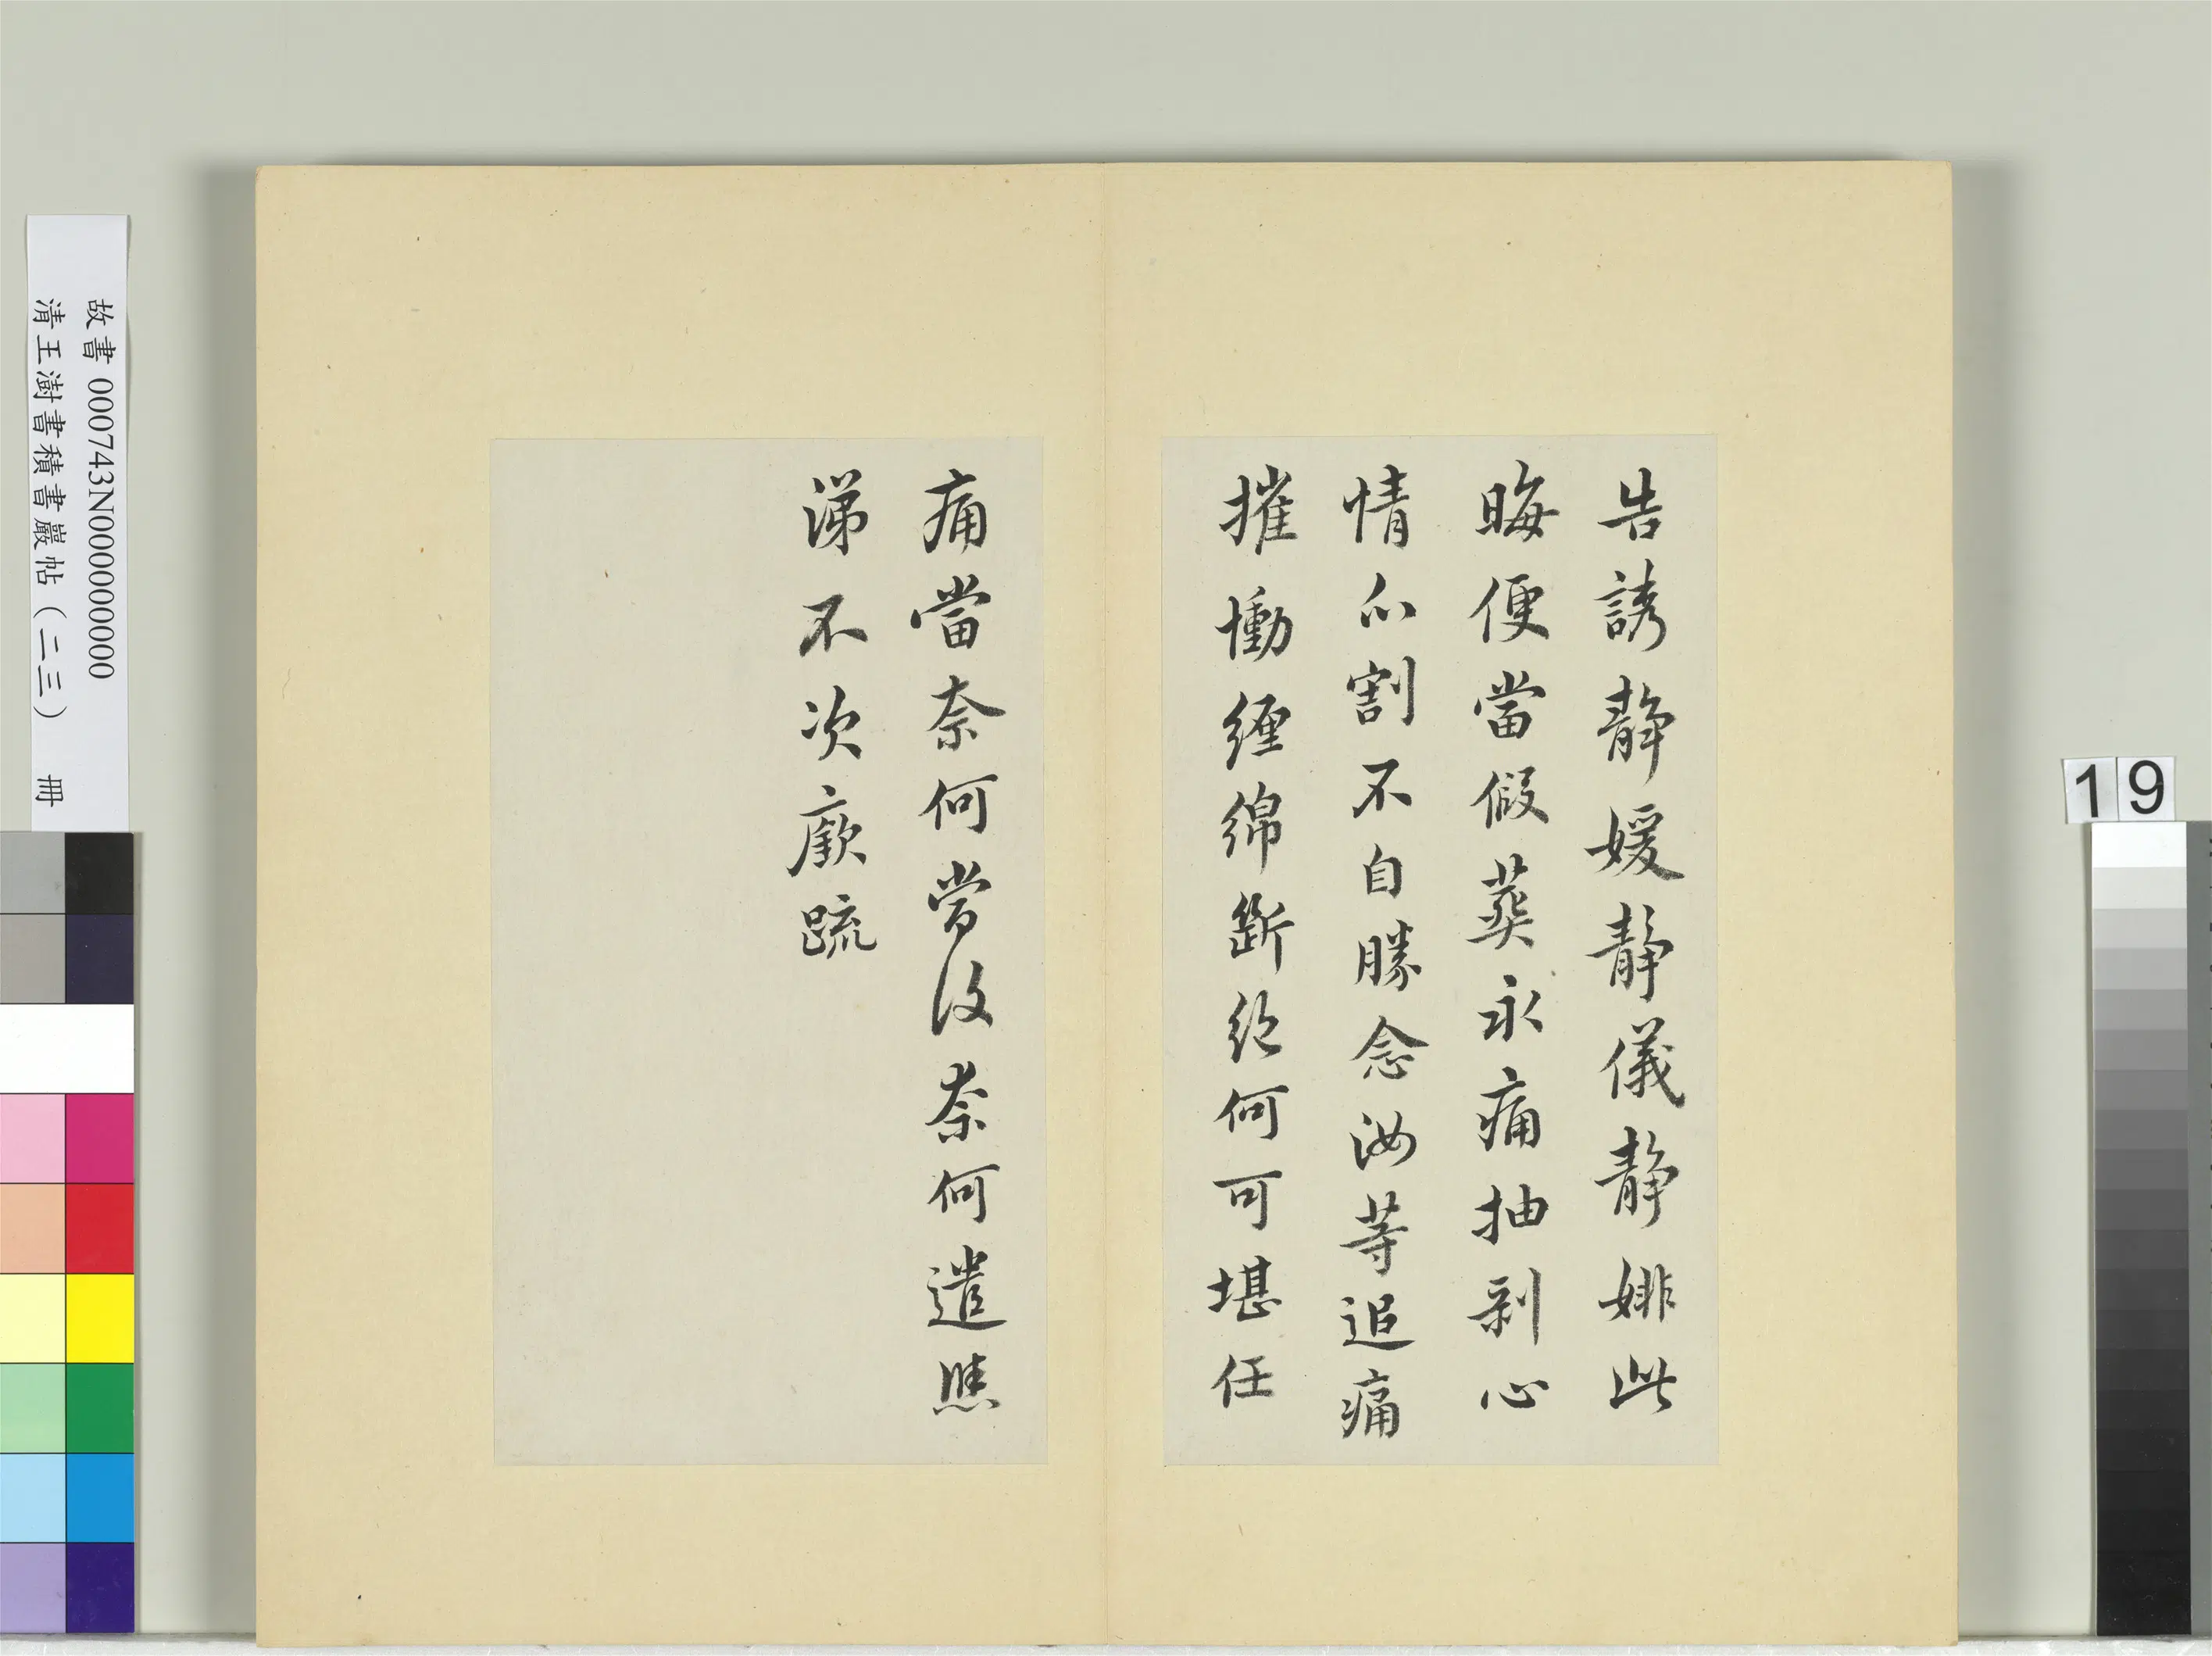 告誘靜媛靜儀靜婔此
晦便當假葬永痛抽剝心
情心割不自勝念汝等追痛
摧慟纏綿斷絕何可堪任
痛當奈何當復奈何遣慜
涕不次廞疏
故書 000743N000000000
清王澍書積書巖帖（二三） 冊
19